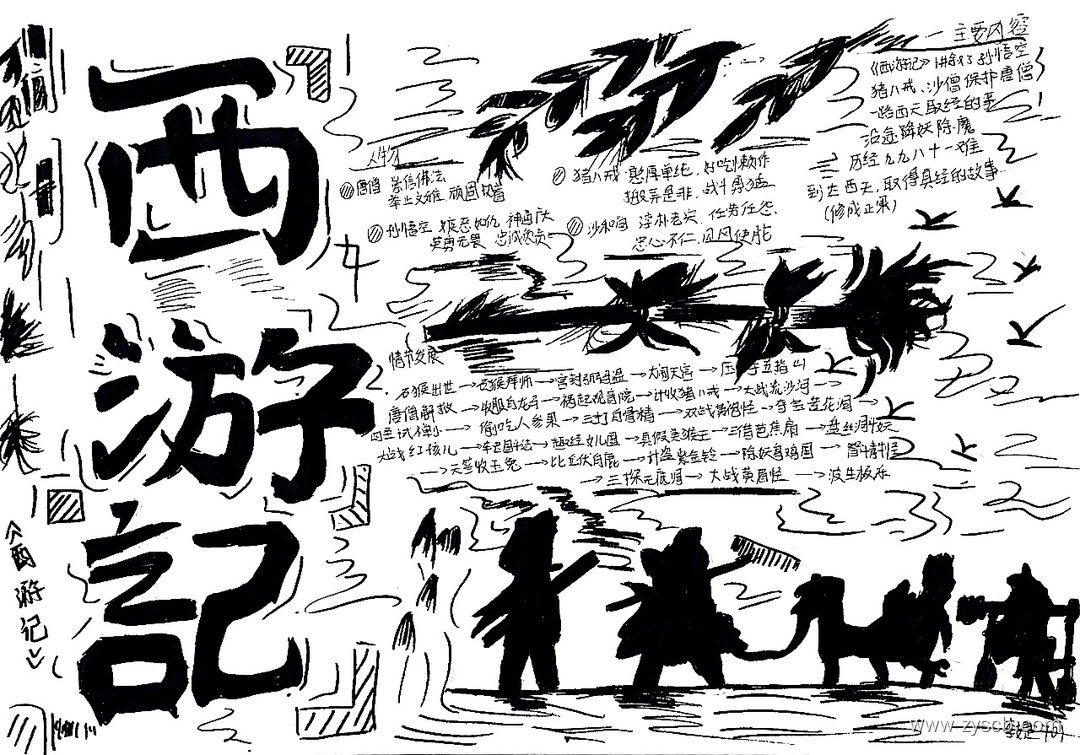 西
游
記
《西游记》
主要内容
《西游记》讲了孙悟空
猪八戒、沙僧保护唐僧
一路西天取经的
沿途降妖除魔
历经九九八十一难
到达西天,取得真经的故事
(修成正果)
人物
唐僧 崇信佛法
顽固
孙悟空 疾恶如仇 神通广大
英勇无畏 忠诚
猪八戒 憨厚单纯,好吃懒作
搬弄是非,战斗勇猛
沙和尚 任劳任怨,
忠心不
情节发展
石猴出世→ →官封弼马温→大闹天宫→压 五指山
唐僧 →收服白龙马→祸起观音院→计收猪八戒→大战流沙河→
四圣试禅心→偷吃人参果→三打白骨精→双战黄袍怪→夺宝莲花洞→
大战红孩儿→车迟国 →趣经女儿国→真假美猴王→三借芭蕉扇→盘丝洞
→天竺收玉兔→比丘伏白鹿→计盗紫金铃→除妖乌鸡国→
→三探无底洞→大战黄眉怪→波生极乐
www.zyscb.com